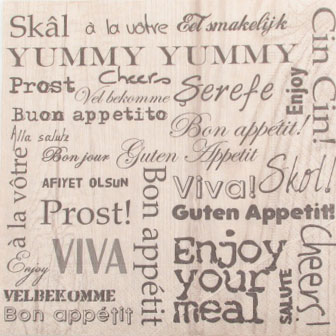 Skâl à la vôtre Eet smakelijk
YUMMY YUMMY
Prost Cheers Şerefe Enjoy
Vel bekomme
Buon appetito
Cin Cin!
Alla salute Bon appétit!
Bon jour Guten Appetit
AFIYET OLSUN Viva! Skoll
à la vôtre
Prost! Bon appétit Guten Appetit!
VIVA Enjoy
your
meal
Enjoy
SALUTE Cheers!
VELBEKOMME
Bon appétit